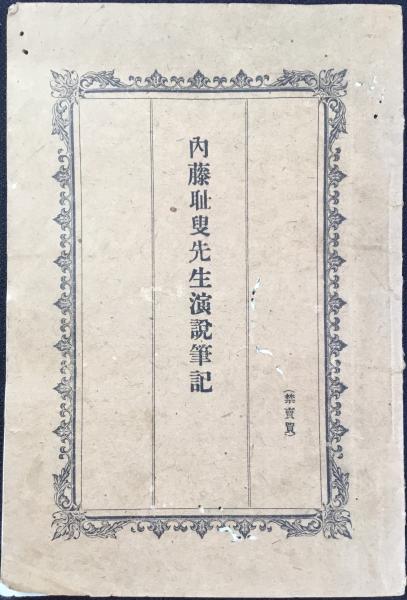 （禁賣買）
內藤耻叟先生演說筆記